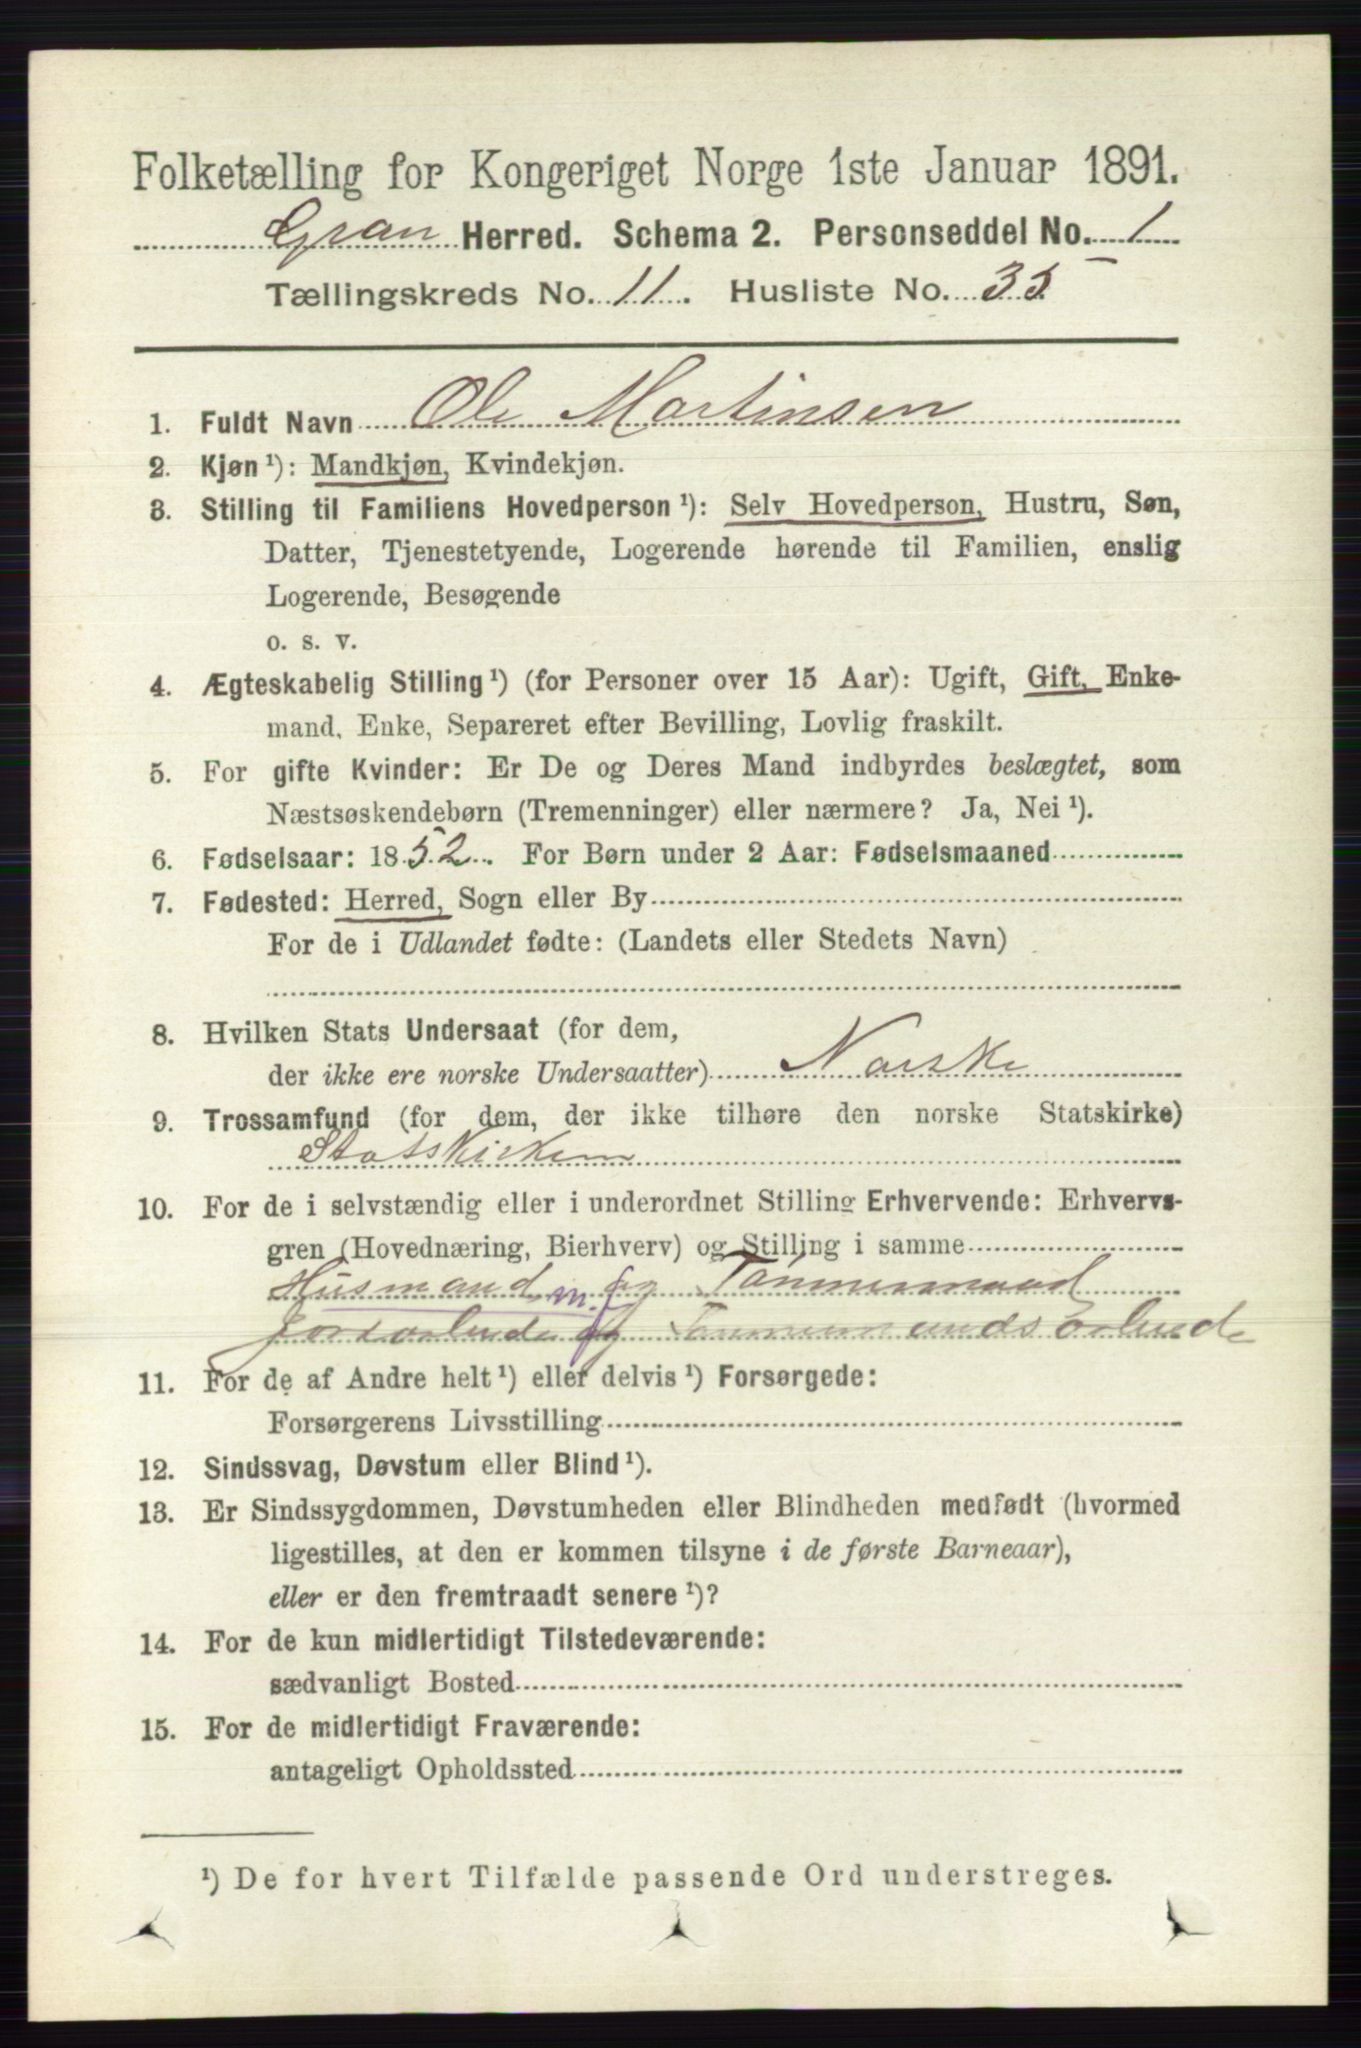 Folketælling for Kongeriget Norge 1ste Januar 1891.
Gran Herred. Schema 2. Personseddel No. 1
Tællingskreds No. 11. Husliste No. 35
1. Fuldt Navn Ole Martinsen
2. Kjøn ¹): Mandkjøn, Kvindekjøn.
3. Stilling til Familiens Hovedperson ¹): Selv Hovedperson, Hustru, Søn,
Datter, Tjenestetyende, Logerende hørende til Familien, enslig
Logerende, Besøgende
o. s. v.
4. Ægteskabelig Stilling ¹) (for Personer over 15 Aar): Ugift, Gift, Enke-
mand, Enke, Separeret efter Bevilling, Lovlig fraskilt.
5. For gifte Kvinder: Er De og Deres Mand indbyrdes beslægtet, som
Næstsøskendebørn (Tremenninger) eller nærmere? Ja, Nei ¹).
6. Fødselsaar: 1852. For Børn under 2 Aar: Fødselsmaaned
7. Fødested: Herred, Sogn eller By
For de i Udlandet fødte: (Landets eller Stedets Navn)
8. Hvilken Stats Undersaat (for dem,
der ikke ere norske Undersaatter) Norske
9. Trossamfund (for dem, der ikke tilhøre den norske Statskirke)
Statskirken
10. For de i selvstændig eller i underordnet Stilling Erhvervende: Erhvervs-
gren (Hovednæring, Bierhverv) og Stilling i samme
Husmand m.j. og Tømmermand
Jordarbeide og Tømmermandsarbeide
11. For de af Andre helt ¹) eller delvis ¹) Forsørgede:
Forsørgerens Livsstilling
12. Sindssvag, Døvstum eller Blind ¹).
13. Er Sindssygdommen, Døvstumheden eller Blindheden medfødt (hvormed
ligestilles, at den er kommen tilsyne i de første Barneaar),
eller er den fremtraadt senere ¹)?
14. For de kun midlertidigt Tilstedeværende:
sædvanligt Bosted
15. For de midlertidigt Fraværende:
antageligt Opholdssted
¹) De for hvert Tilfælde passende Ord understreges.